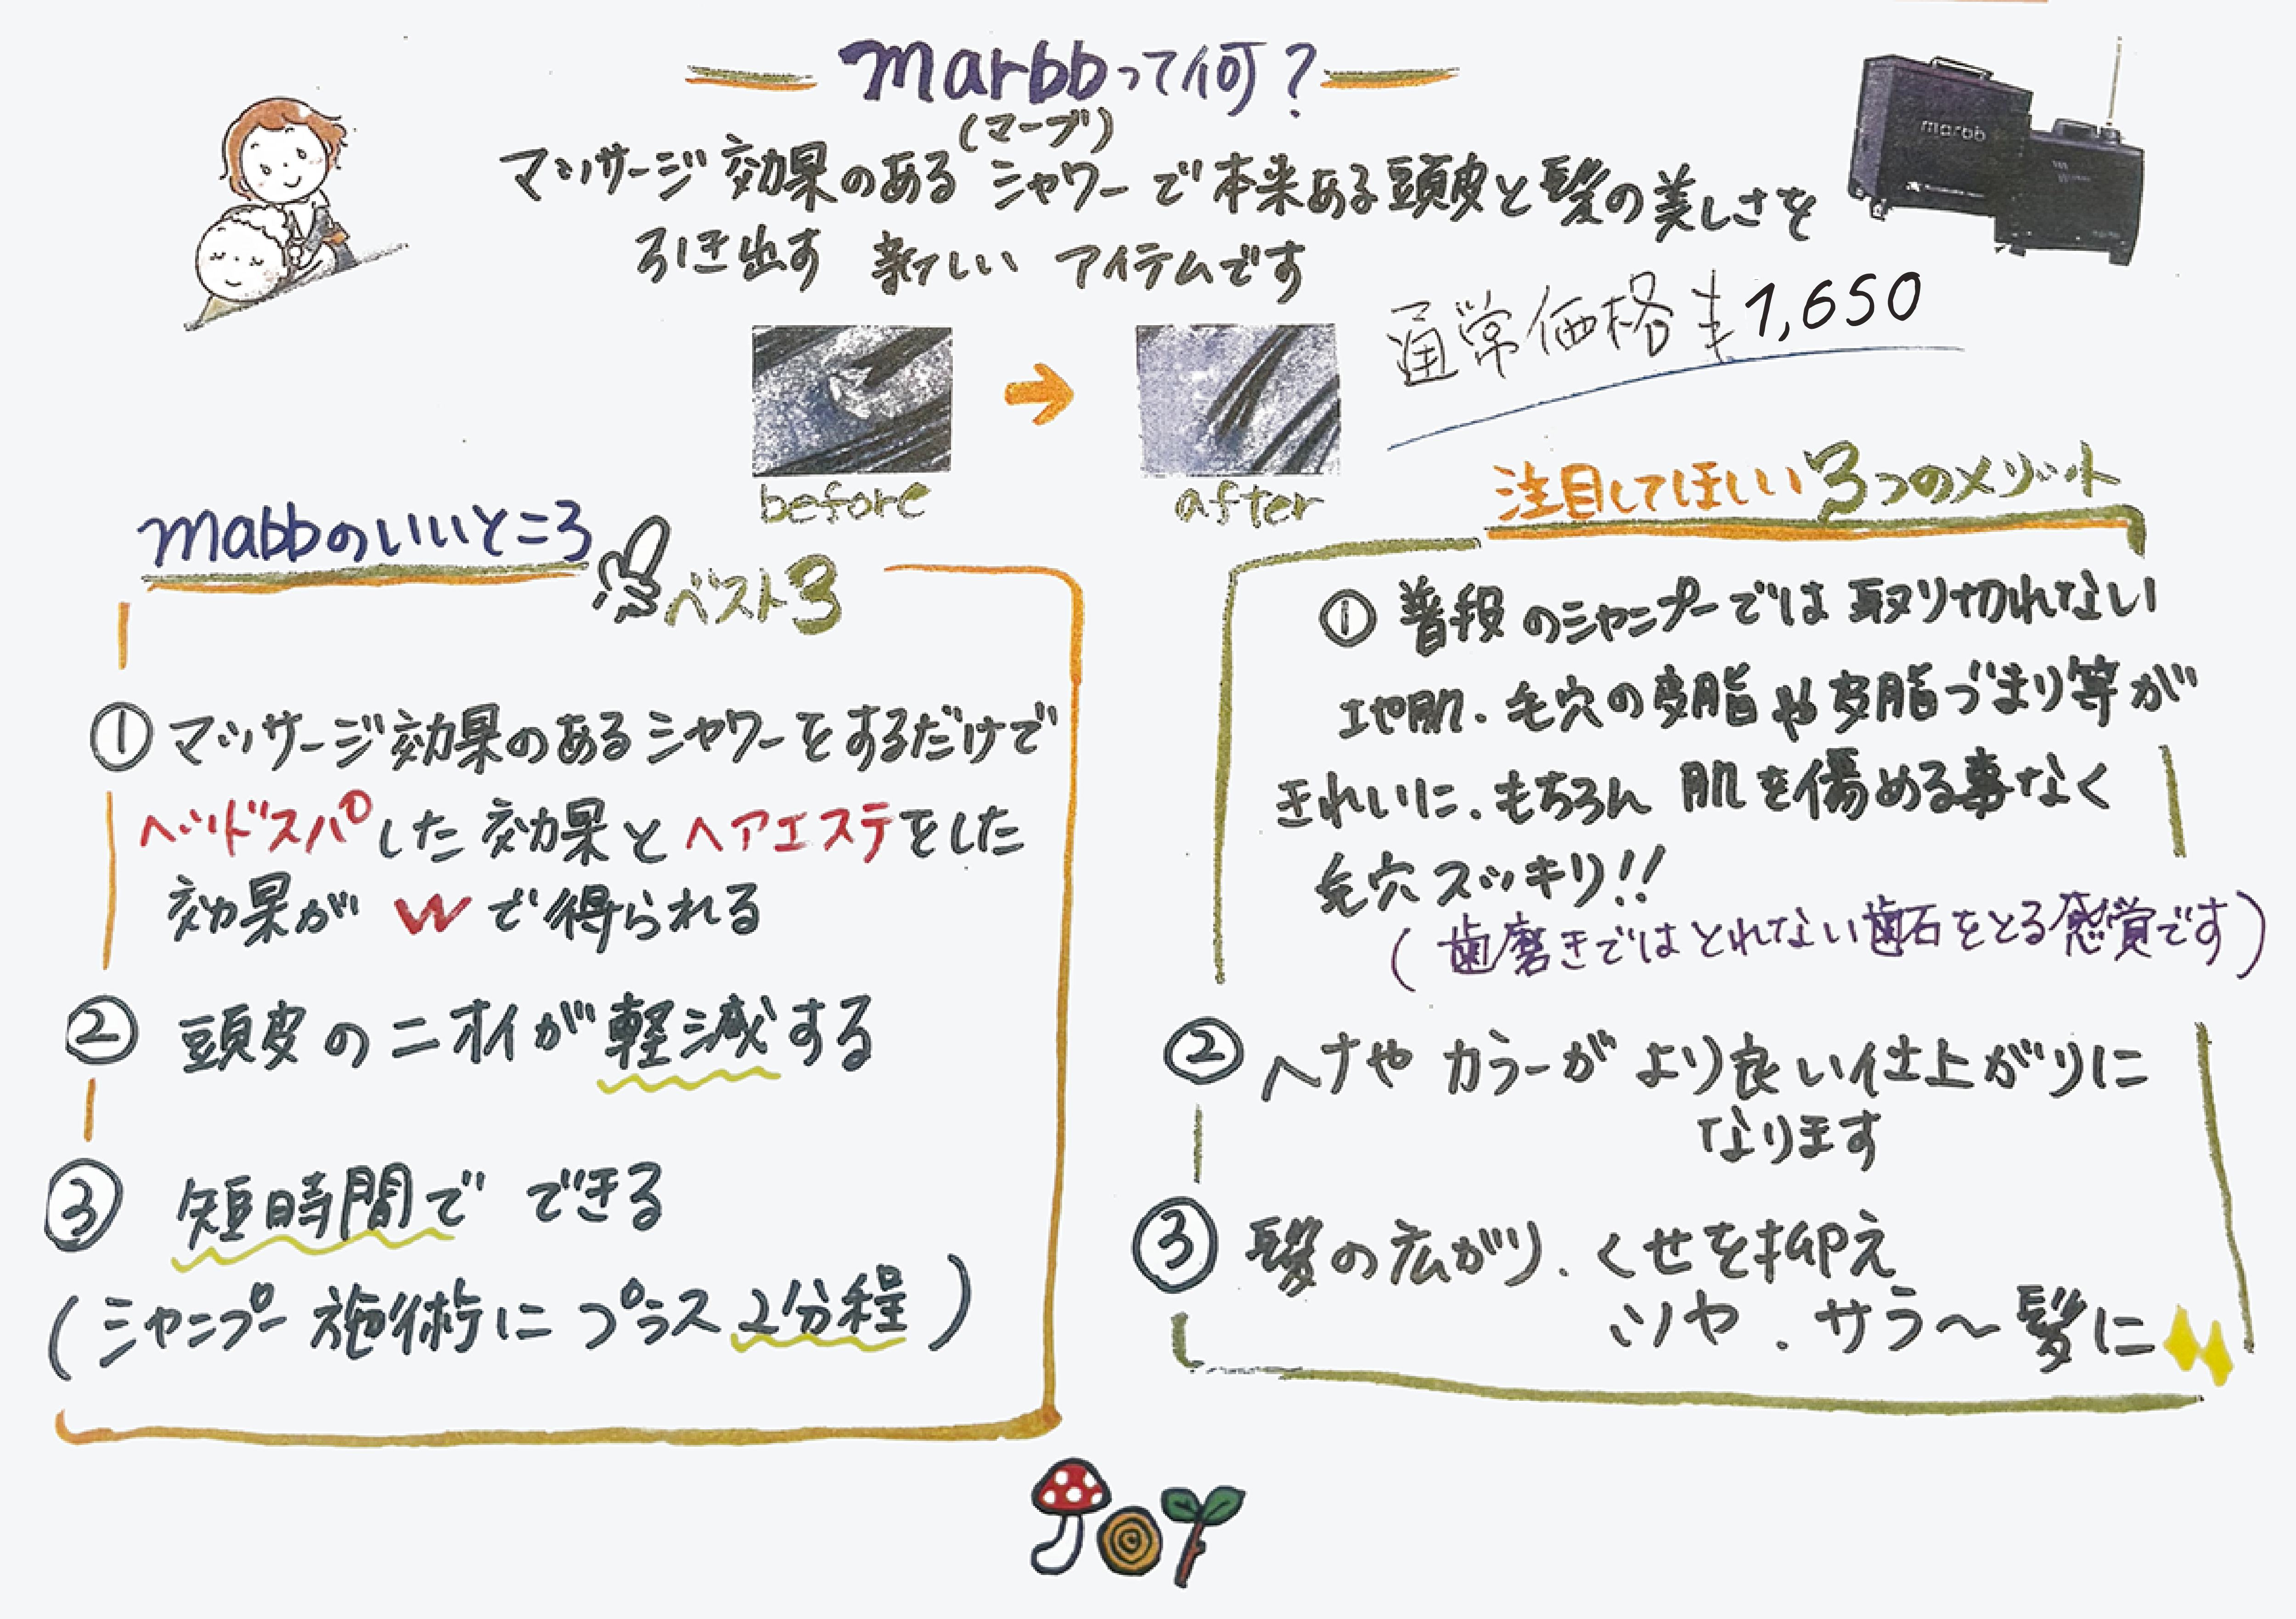 marbbって何？
(マーブ)
マッサージ効果のあるシャワーで本来ある頭皮と髪の美しさを
引き出す 新しい アイテムです
marbb
通常価格 ¥1,650
before
after
mabbのいいところ
ベスト3
① マッサージ効果のあるシャワーをするだけで
ヘッドスパした効果とヘアエステをした
効果が Wで得られる
② 頭皮のニオイが軽減する
③ 短時間で できる
(シャンプー施術に プラス2分程)
注目してほしい3つのメリット
① 普段のシャンプーでは取り切れない
地肌.毛穴の皮脂や皮脂づまり等が
きれいに.もちろん 肌を傷める事なく
毛穴スッキリ!!
(歯磨きではとれない歯石をとる感覚です)
② ヘナや カラーが より良い仕上がりに
なります
③ 髪の広がり.くせを抑え
ツヤ.サラ〜髪に
JOY